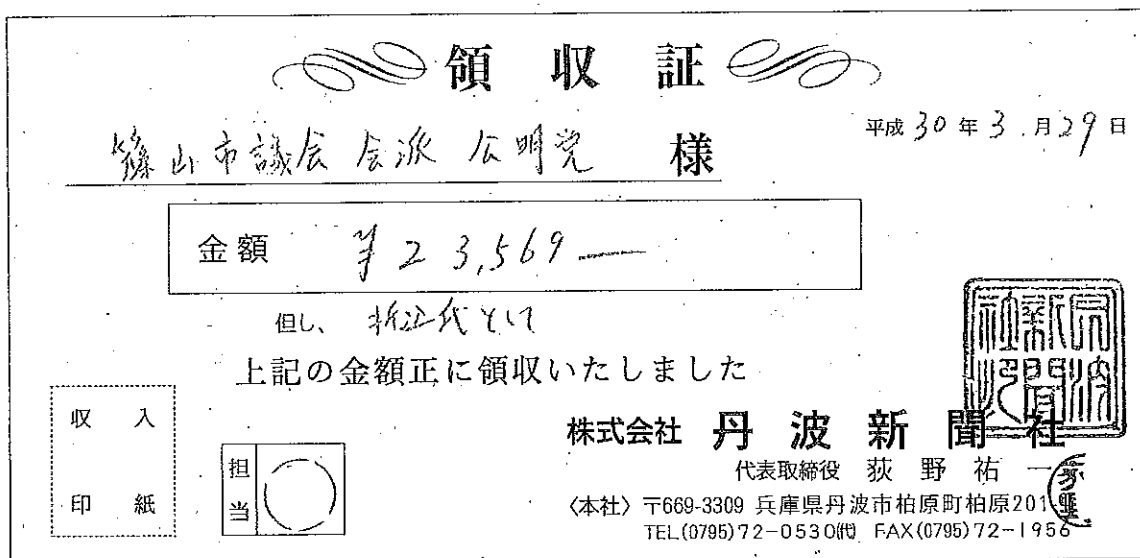 領収証
平成30年3月29日
篠山市議会 会派 公明党 様
金額 ¥23,569—
但し、折込代として
上記の金額正に領収いたしました
収入
印紙
担当
株式会社 丹波新聞社
代表取締役 荻野祐一
〈本社〉〒669-3309 兵庫県丹波市柏原町柏原201
TEL(0795)72-0530㈹ FAX(0795)72-1956
丹波新聞社印